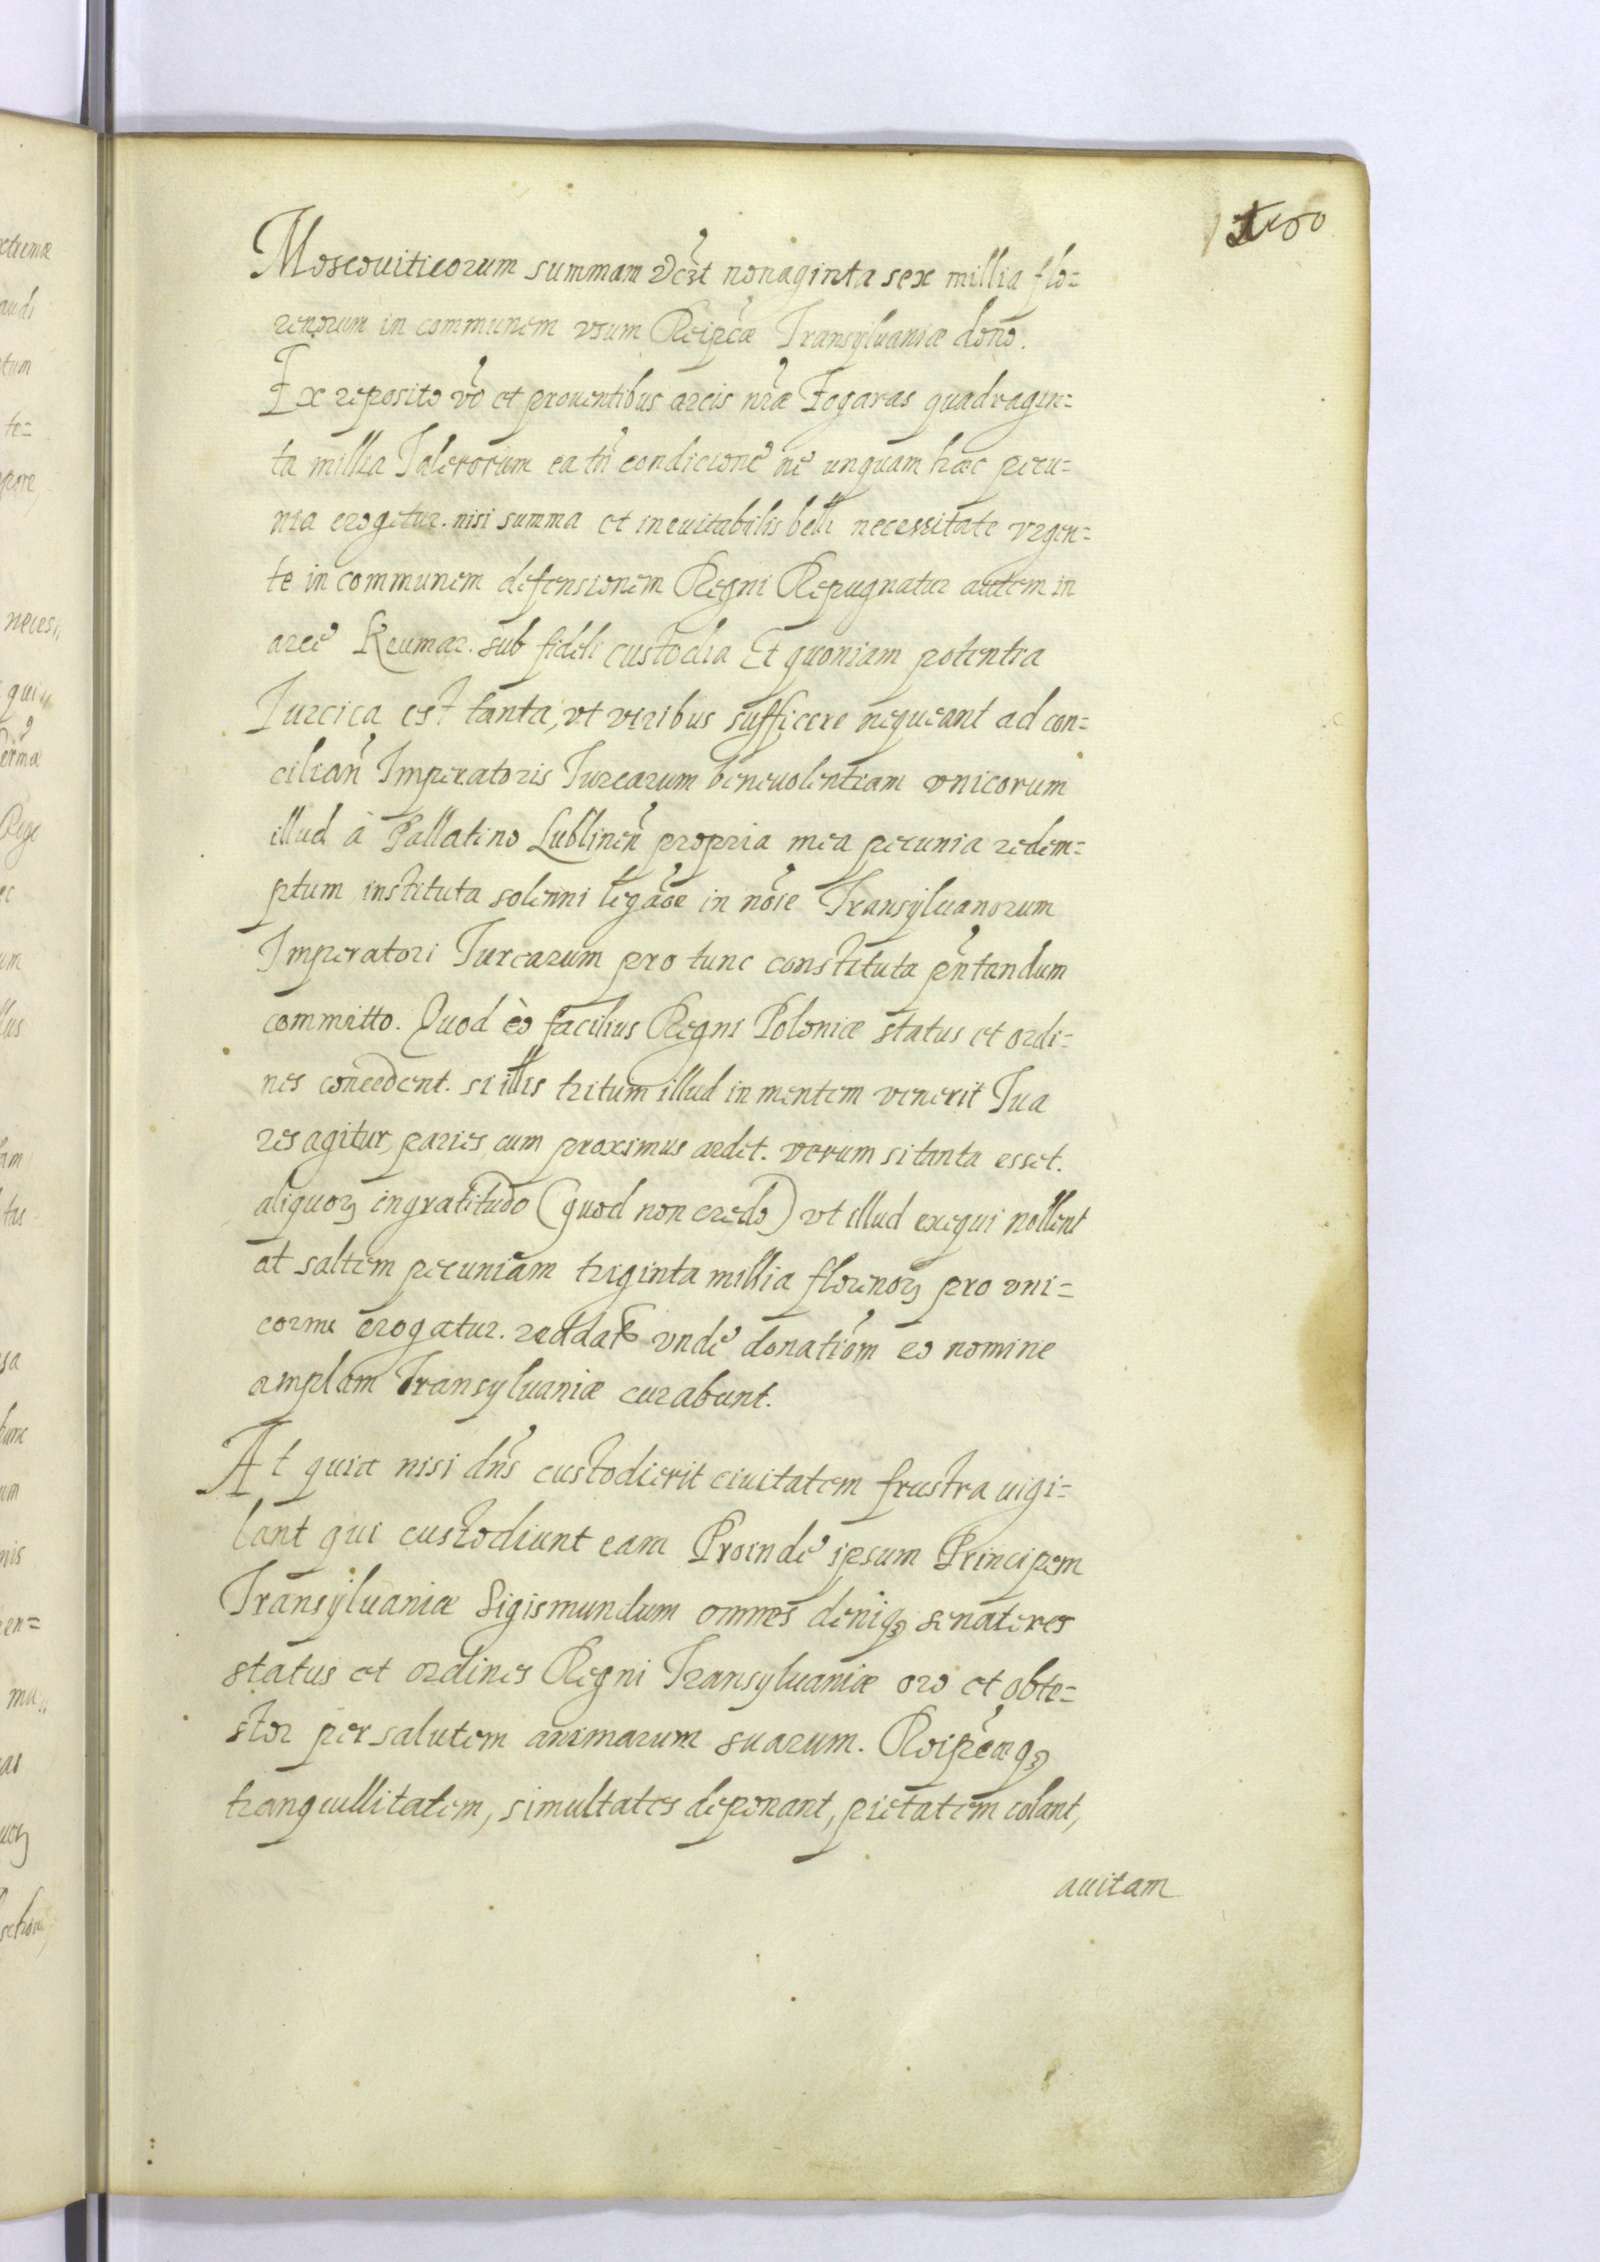 Moscouiticorum summam vert nonaginta sex millia flo=
renorum in communem vsum Reipcæ Transyluaniæ dono.
Ex reposito vo et prouentibus arcis nræ Fogaras quadragin=
ta millia Talerorum ea tn condicione ne unquam hæc pecu=
nia erogetur. nisi summa et ineuitabilis belli necessitate vrgen=
te in communem defensionem Regni Repugnatur autem in
arce Keumar. sub fideli custodia Et quoniam potentia
Turcica est tanta, vt viribus sufficere nequeant ad con=
cilian Imperatoris Turcarum beneuolentiam vnicorum
illud à Pallatino Lublinen propria mea pecunia redem=
ptum instituta solenni legaoe in noie Transyluanorum
Imperatori Turcarum pro tunc constituta pntandum
committo. Quod eò facilius Regni Poloniæ status et ordi=
nes concedent. si illis tritum illud in mentem venerit Tua
res agitur, paries cum proximus ardet. verum si tanta esset.
aliquoꝝ ingratitudo (quod non credo) vt illud exequi nollent
at saltem pecuniam triginta millia florenoꝝ pro vni=
cornu erogatur. vnde donatiom eo nomine
amplam Transyluaniæ curabunt.
At quia nisi dns custodierit ciuitatem frustra uigi=
lant qui custodiunt eam Proinde ipsum Principem
Transyluaniæ Sigismundum omnes deniqꝫ senatores
status et ordines Regni Transyluaniæ oro et obte=
stor per salutem animarum suarum. Reipcæqꝫ
tranquillitatem, simultates deponant, pietatem colant,
auitam